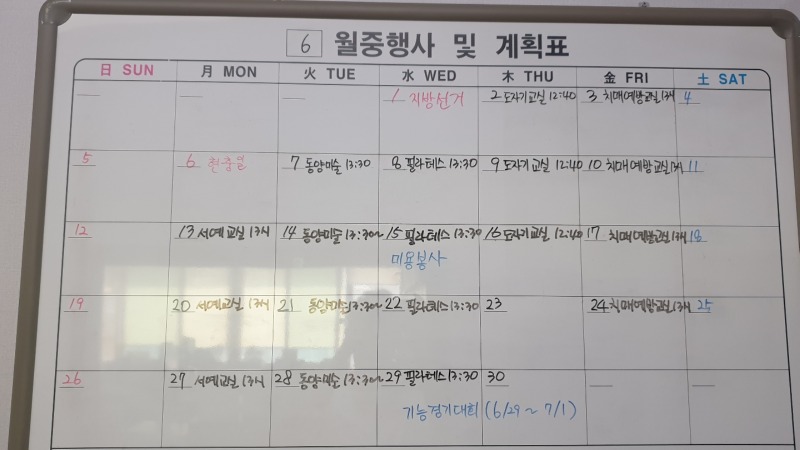 6 월중행사 및 계획표
日 SUN 月 MON 火 TUE 水 WED 木 THU 金 FRI 土 SAT
1 지방선거 2 도자기교실 12:40 3 치매예방교실 13시 4
5 6 현충일 7 동양미술 13:30 8 필라테스 13:30 9 도자기교실 12:40 10 치매예방교실 13시 11
12 13 서예교실 13시 14 동양미술 13:30~ 15 필라테스 13:30 16 도자기교실 12:40 17 치매예방교실 13시 18
미용봉사
19 20 서예교실 13시 21 동양미술 13:30~ 22 필라테스 13:30 23 24 치매예방교실 13시 25
26 27 서예교실 13시 28 동양미술 13:30~ 29 필라테스 13:30 30
기능경기대회 (6/29 ~ 7/1)